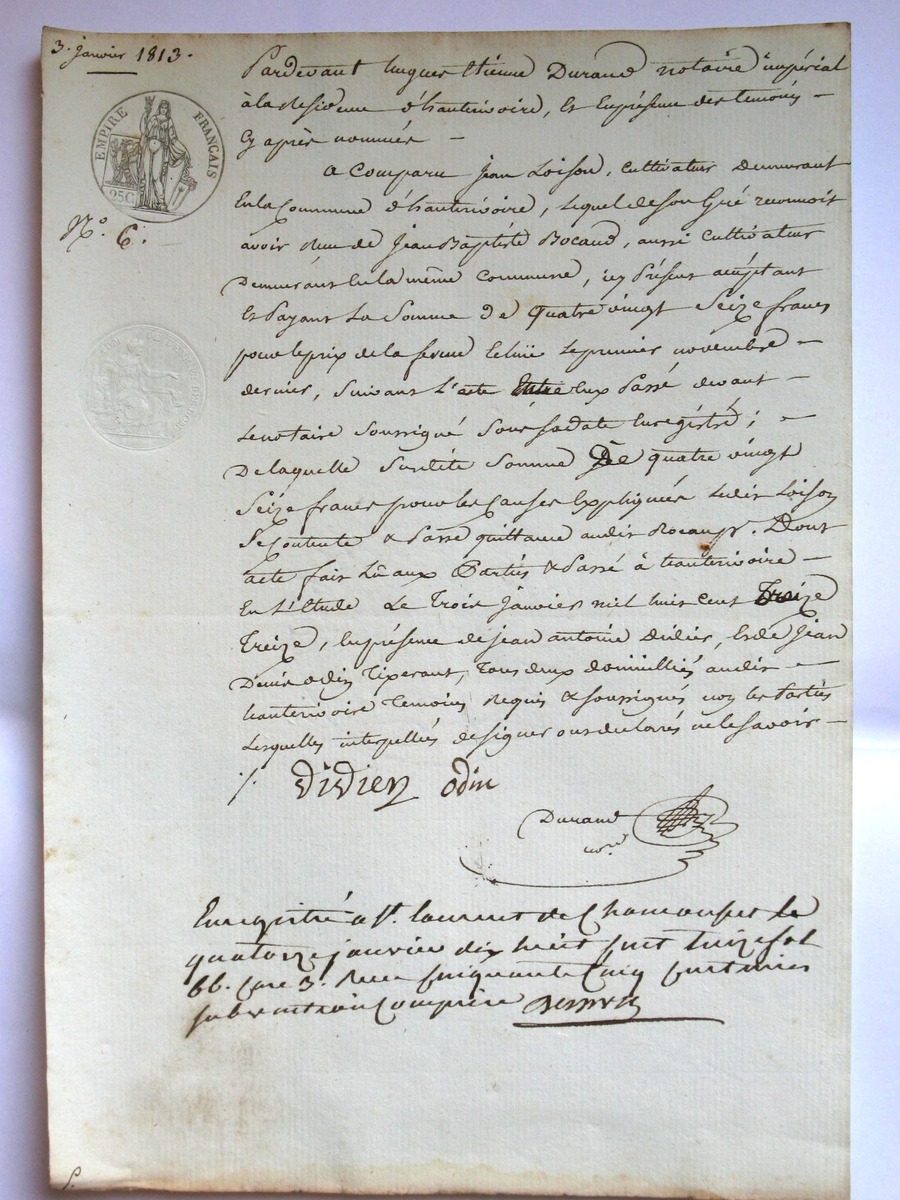 3. janvier 1813.
EMPIRE FRANÇAIS
25C
N.º 6.
Pardevant hugues Etienne Durand notaire impérial
à la residence d'hauterivoire, Et En présence des temoins
Cy après nommés
a Comparu jean Loison, cultivateur Demeurant
En la Commune d'hauterivoire, lequel de son Gré reconnoit
avoir Reçu de Jean Baptiste Bocand, aussi Cultivateur
Demeurant En la même Commune, icy Présent acceptant
Et Payant La Somme De quatre vingt Seize francs
pour le prix de la ferme Echue le premier novembre
dernier, Suivant L'acte Entre Eux Passé devant
Le notaire Soussigné Sous sa date Enregistré;
De laquelle Susdite Somme De quatre vingt
Seize francs pour les Causes Expliquées Ledit Loison
Se Contente & Passe quittance audit Bocand. Dont
acte fait Lû aux Parties & Passé à hauterivoire
En L'Etude Le Trois Janvier mil huit Cent
Treize, En présence de jean antoine Didier, Et de Jean
Denis odin Tixerant, Tous deux domiciliés audit
hauterivoire Temoins Requis & soussignés non les Parties
Lesquelles interpellées de signer ont declarés ne le savoir
didier odin
Durand
no.re
Enregistré a St. laurent de Chamousset le
quatorze janvier dix huit cent treize fol
66. Case 3. Recu Cinquante Cinq Centimes
subvention Comprise